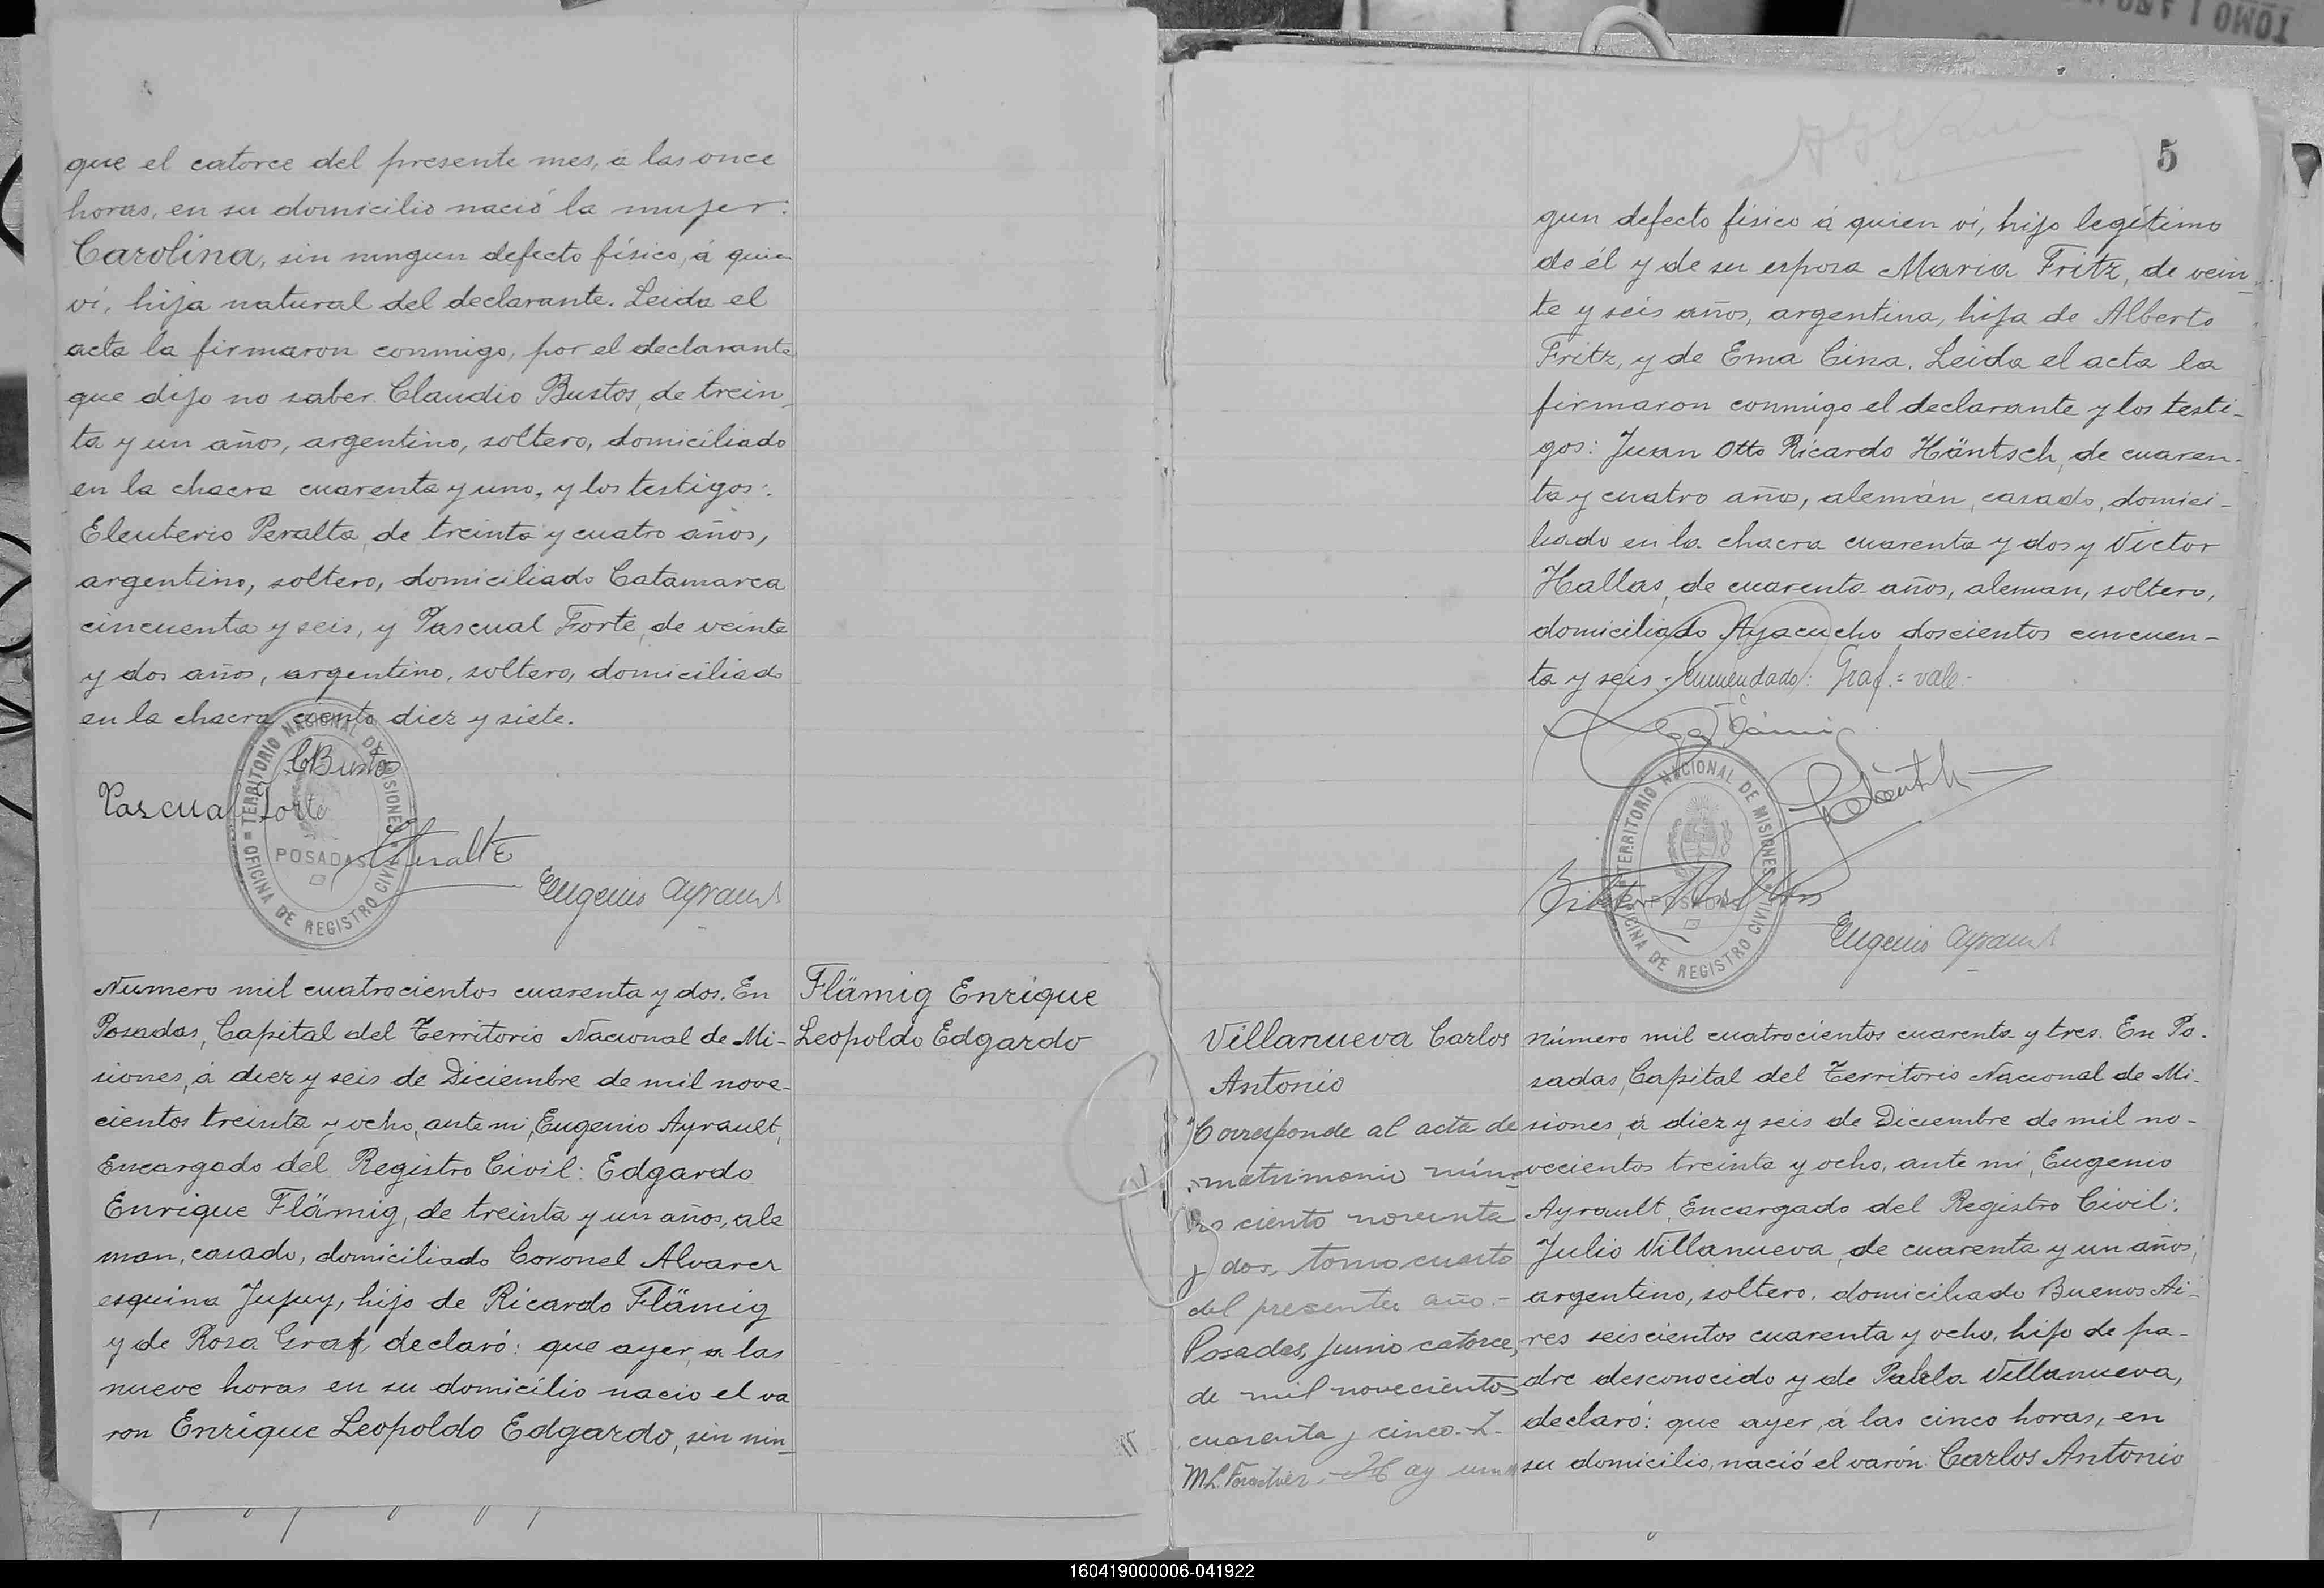 que el catorce del presente mes, a las once
horas, en su domicilio nació la mujer:
Carolina, sin ningun defecto físico, á quien
ví, hija natural del declarante. Leida el
acta la firmaron conmigo, por el declarante
que dijo no saber Claudio Bustos, de trein-
ta y un años, argentino, soltero, domiciliado
en la chacra cuarenta y uno, y los testigos:
Eleuterio Peralta, de treinta y cuatro años,
argentino, soltero, domiciliado Catamarca
cincuenta y seis, y Pascual Forte, de veinte
y dos años, argentino, soltero, domiciliado
en la chacra ciento diez y siete.
CBustos
Pascual Forte
EPeralta
Eugenio Ayrault
TERRITORIO NACIONAL DE MISIONES
OFICINA DE REGISTRO CIVIL
POSADAS
Numero mil cuatrocientos cuarenta y dos. En
Posadas, Capital del Territorio Nacional de Mi-
siones, á diez y seis de Diciembre de mil nove-
cientos treinta y ocho, ante mi, Eugenio Ayrault,
Encargado del Registro Civil: Edgardo
Enrique Flämig, de treinta y un años, ale
man, casado, domiciliado Coronel Alvarez
esquina Jujuy, hijo de Ricardo Flämig
y de Rosa Graf, declaró: que ayer, a las
nueve horas en su domicilio nacio el va
ron Enrique Leopoldo Edgardo, sin nin-
Flämig Enrique
Leopoldo Edgardo
TOMO I AÑO
5
gun defecto físico á quien ví, hijo legítimo
de él y de su esposa Maria Fritz, de vein-
te y seis años, argentina, hija de Alberto
Fritz, y de Ema Cina. Leida el acta la
firmaron conmigo el declarante y los testi-
gos: Juan Otto Ricardo Häntsch, de cuaren-
ta y cuatro años, alemán, casado, domici-
liado en la chacra cuarenta y dos y Victor
Hallas, de cuarenta años, aleman, soltero,
domiciliado Ayacucho doscientos cincuen-
ta y seis. Enmendado: Graf.= vale.-
Flämig
Häntsch
Eugenio Ayrault
TERRITORIO NACIONAL DE MISIONES
OFICINA DE REGISTRO CIVIL
POSADAS
Villanueva Carlos
Antonio
Corresponde al acta de
matrimonio núme-
ro ciento noventa
y dos, tomo cuarto
del presente año.-
Posadas, Junio catorce,
de mil novecientos
cuarenta y cinco.-
Hay una
número mil cuatrocientos cuarenta y tres. En Po-
sadas, Capital del Territorio Nacional de Mi-
siones, á diez y seis de Diciembre de mil no-
vecientos treinta y ocho, ante mi, Eugenio
Ayrault, Encargado del Registro Civil:
Julio Villanueva, de cuarenta y un años,
argentino, soltero, domiciliado Buenos Ai-
res seiscientos cuarenta y ocho, hijo de pa-
dre desconocido y de Pabla Villanueva,
declaró: que ayer, á las cinco horas, en
su domicilio, nació el varón Carlos Antonio
160419000006-041922